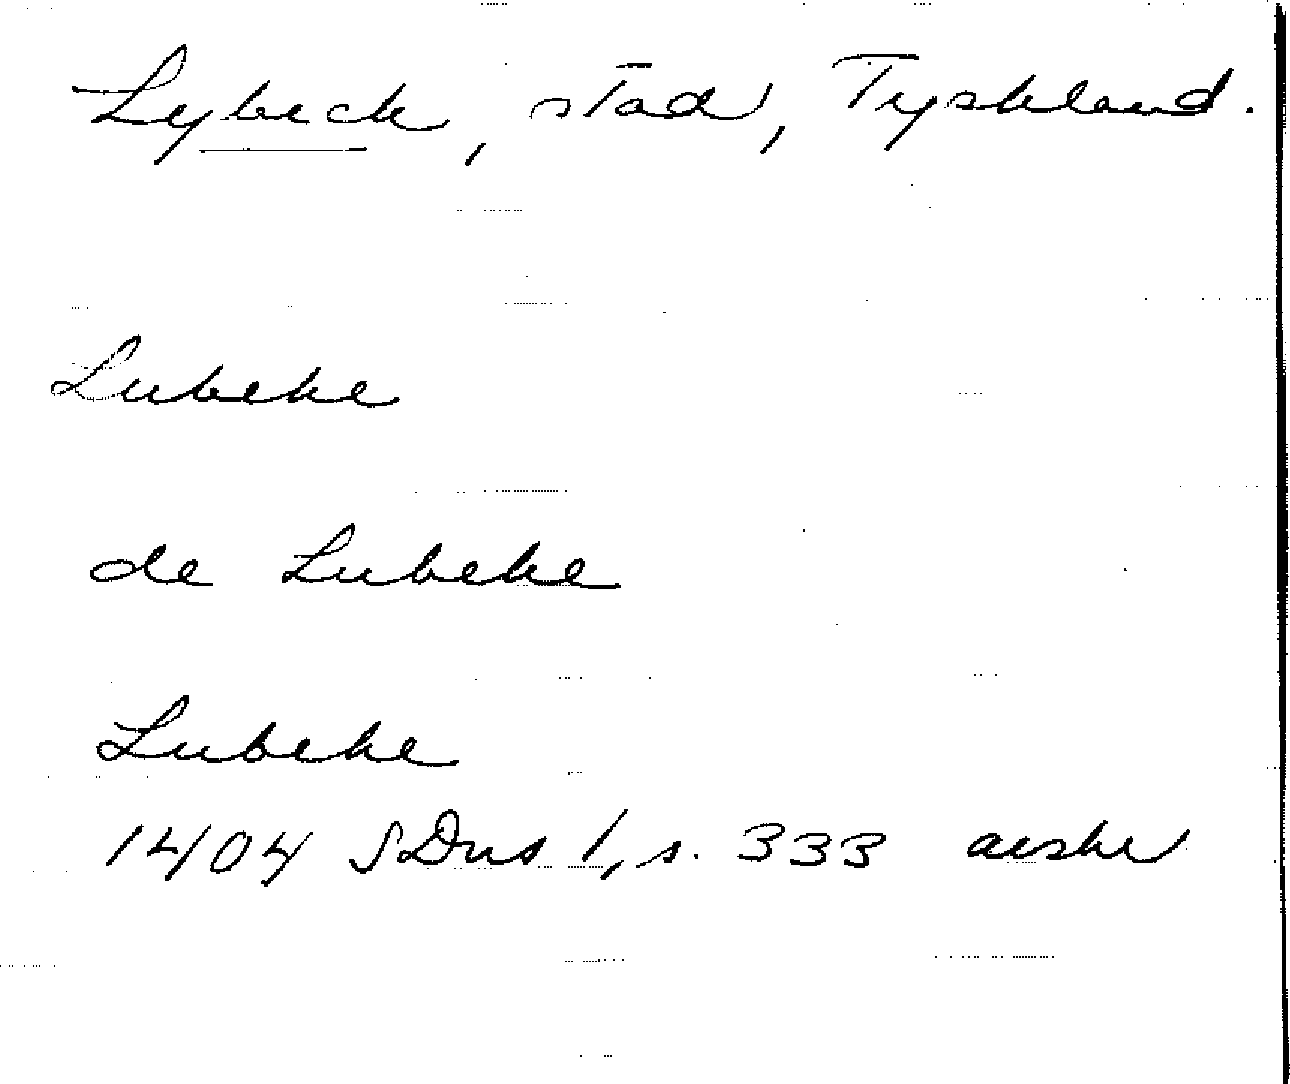 Lybeck, stad, Tyskland.
Lubeke
de Lubeke
Lubeke
1404 SDns 1, s. 333 avskr